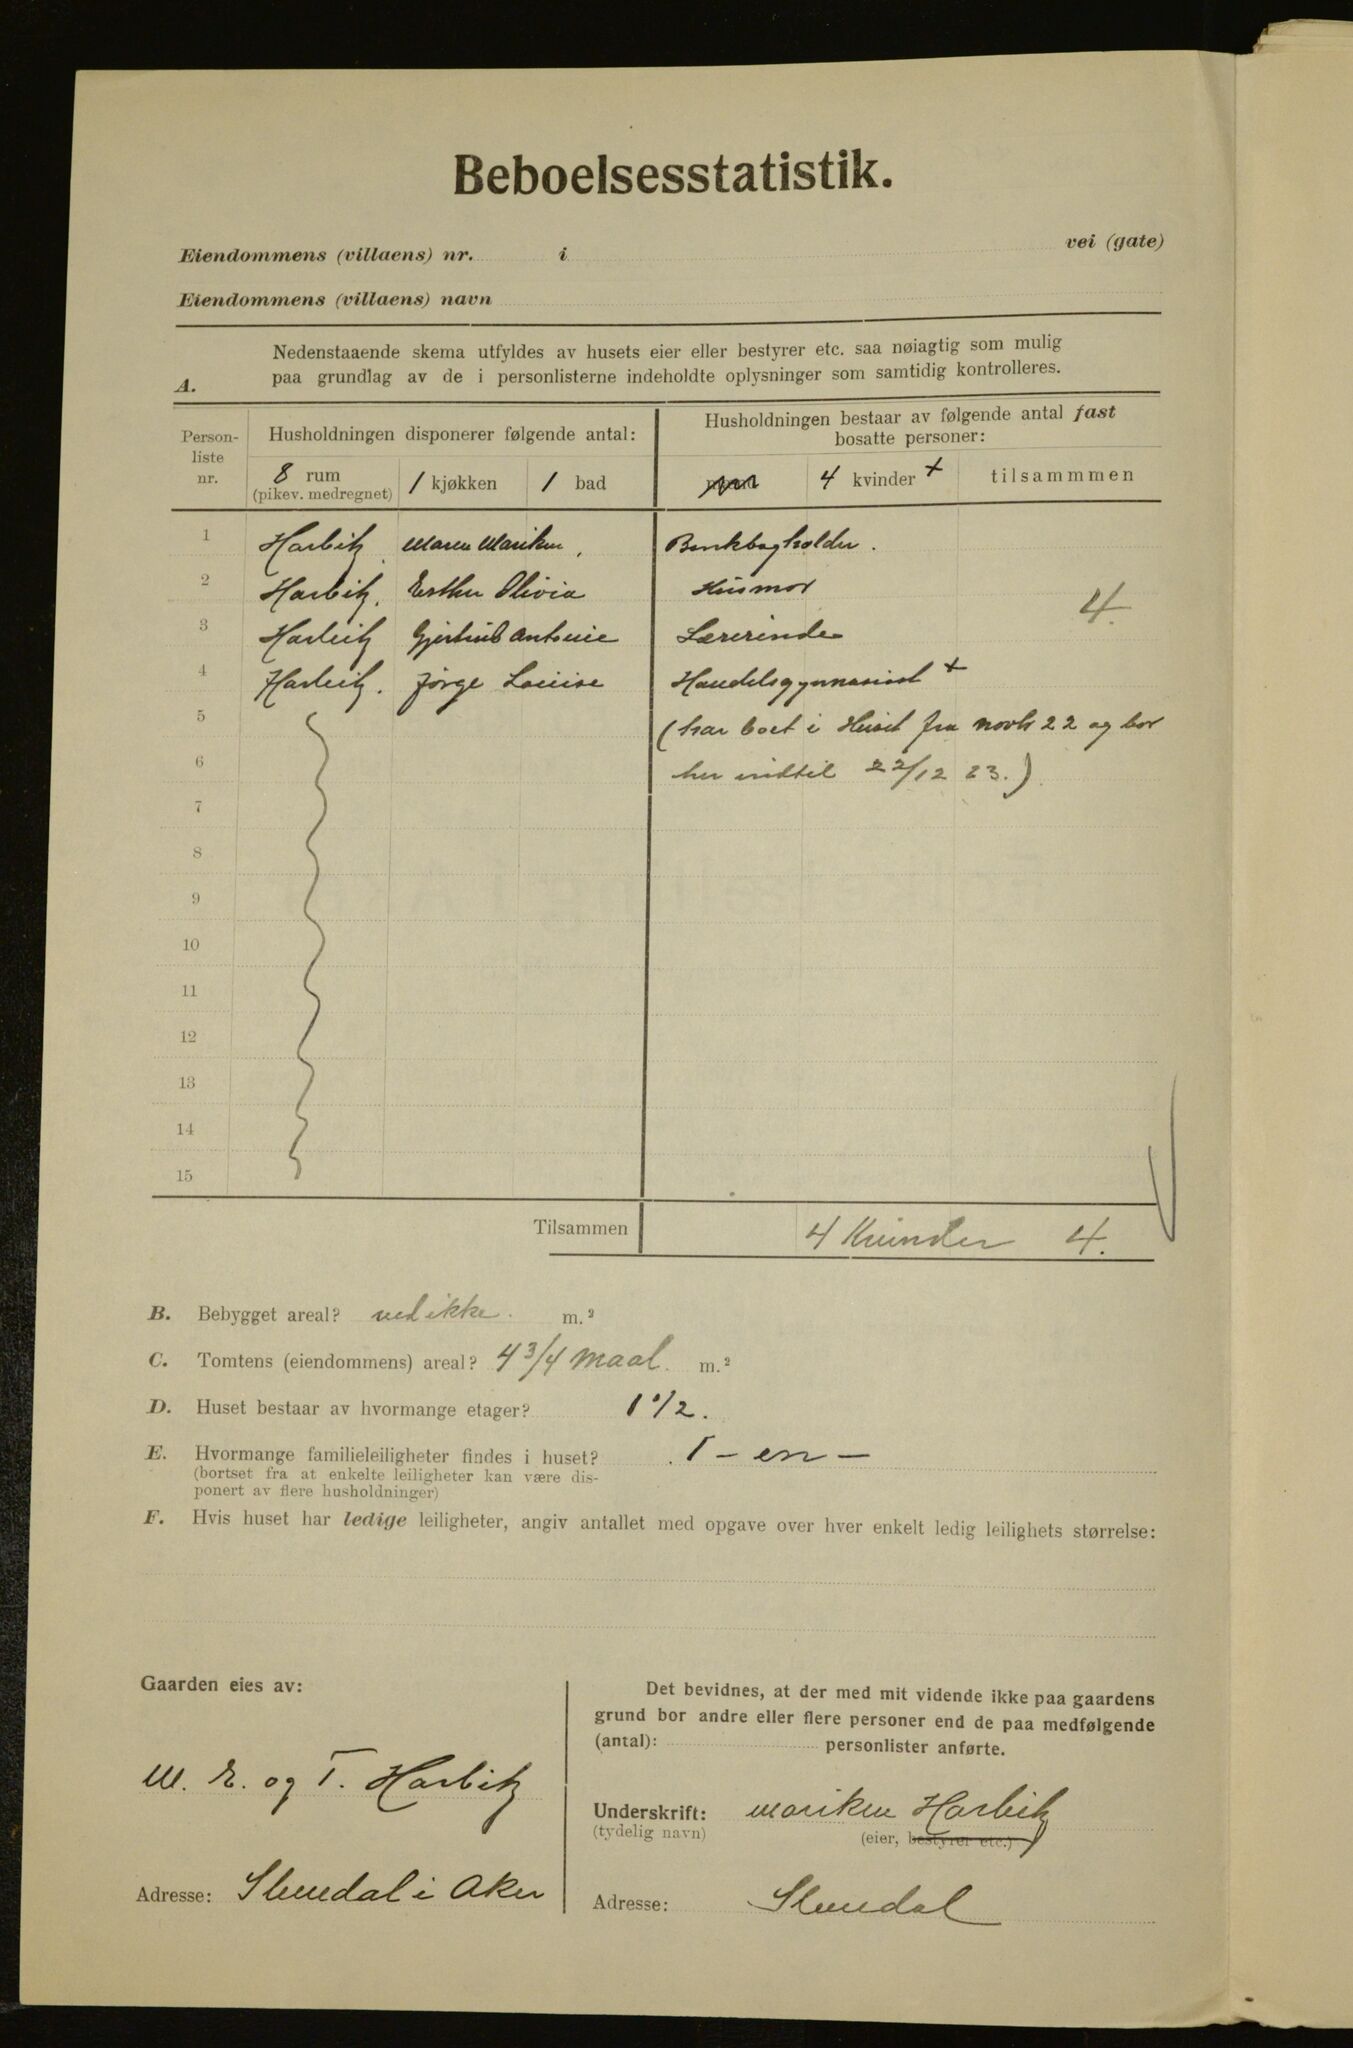 Beboelsesstatistik.
Eiendommens (villaens) nr. i vei (gate)
Eiendommens (villaens) navn
A. Nedenstaaende skema utfyldes av husets eier eller bestyrer etc. saa nøiagtig som mulig
paa grundlag av de i personlisterne indeholdte oplysninger som samtidig kontrolleres.
Person-
liste
nr.
Husholdningen disponerer følgende antal:
8 rum
(pikev. medregnet)
1 kjøkken
1 bad
Husholdningen bestaar av følgende antal fast
bosatte personer:
4 kvinder +
tilsammmen
1 Harbitz, Maren Mariken, Bankbogholder.
2 Harbitz, Esther Olivia Husmor
4.
3 Harbitz Antonie Lærerinde
4 Harbitz. Louise Handelsgymnasiast +
5 (har boet i Huset fra novbr 22 og bor
6 her indtil 22/12 23.)
7
8
9
10
11
12
13
14
15
Tilsammen 4 Kvinder 4.
B. Bebygget areal? ved ikke. m.²
C. Tomtens (eiendommens) areal? 4 3/4 Maal. m.²
D. Huset bestaar av hvormange etager? 1 1/2.
E. Hvormange familieleiligheter findes i huset? 1 - en -
(bortset fra at enkelte leiligheter kan være dis-
ponert av flere husholdninger)
F. Hvis huset har ledige leiligheter, angiv antallet med opgave over hver enkelt ledig leilighets størrelse:
Gaarden eies av:
M. E. og T. Harbitz
Adresse: Slemdal i Aker
Det bevidnes, at der med mit vidende ikke paa gaardens
grund bor andre eller flere personer end de paa medfølgende
(antal): personlister anførte.
Underskrift: Mariken Harbitz
(tydelig navn) (eier, bestyrer etc.)
Adresse: Slemdal